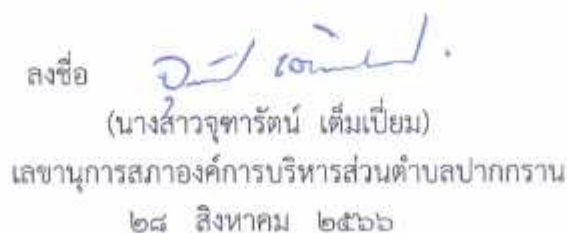 ลงชื่อ
(นางสาวจุฑารัตน์ เต็มเปี่ยม)
เลขานุการสภาองค์การบริหารส่วนตำบลปากกราน
๒๘ สิงหาคม ๒๕๖๖